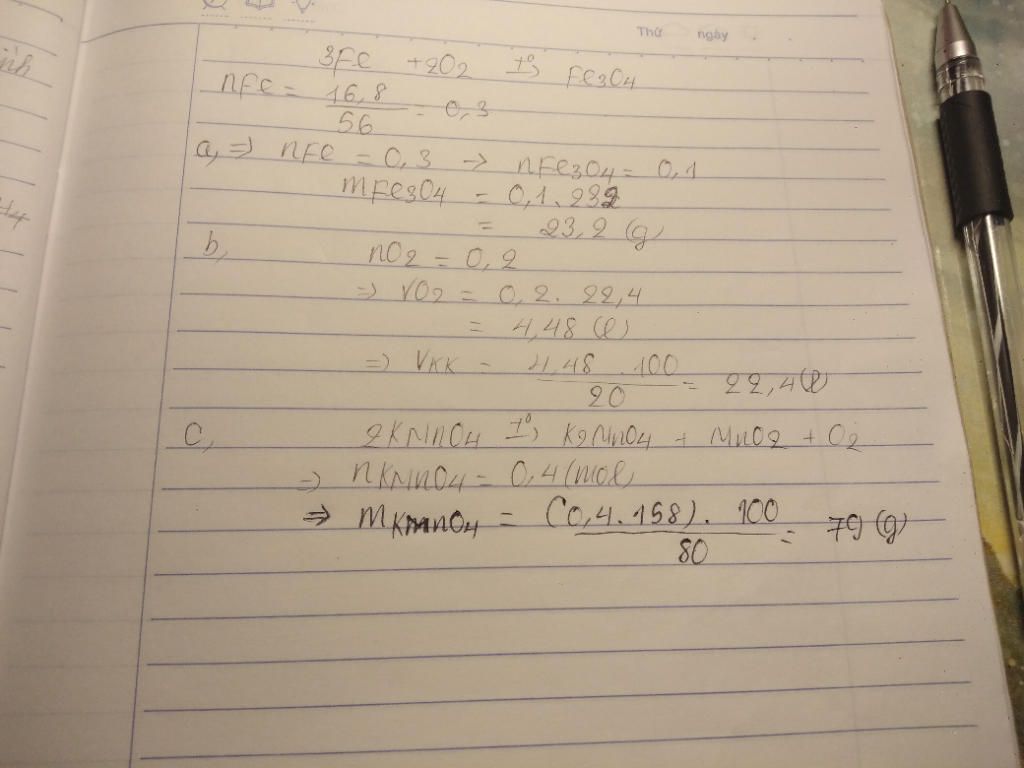 Thứ ngày
3Fe + 2O2 t°→ Fe3O4
nFe = 16,8 / 56 = 0,3
a, => nFe = 0,3 -> nFe3O4 = 0,1
mFe3O4 = 0,1 . 232
= 23,2 (g)
b, nO2 = 0,2
=> VO2 = 0,2 . 22,4
= 4,48 (l)
=> VKK = 4,48 . 100 / 20 = 22,4 (l)
C, 2KMnO4 t°→ K2MnO4 + MnO2 + O2
=> nKMnO4 = 0,4 (mol)
=> mKMnO4 = (0,4 . 158) . 100 / 80 = 79 (g)